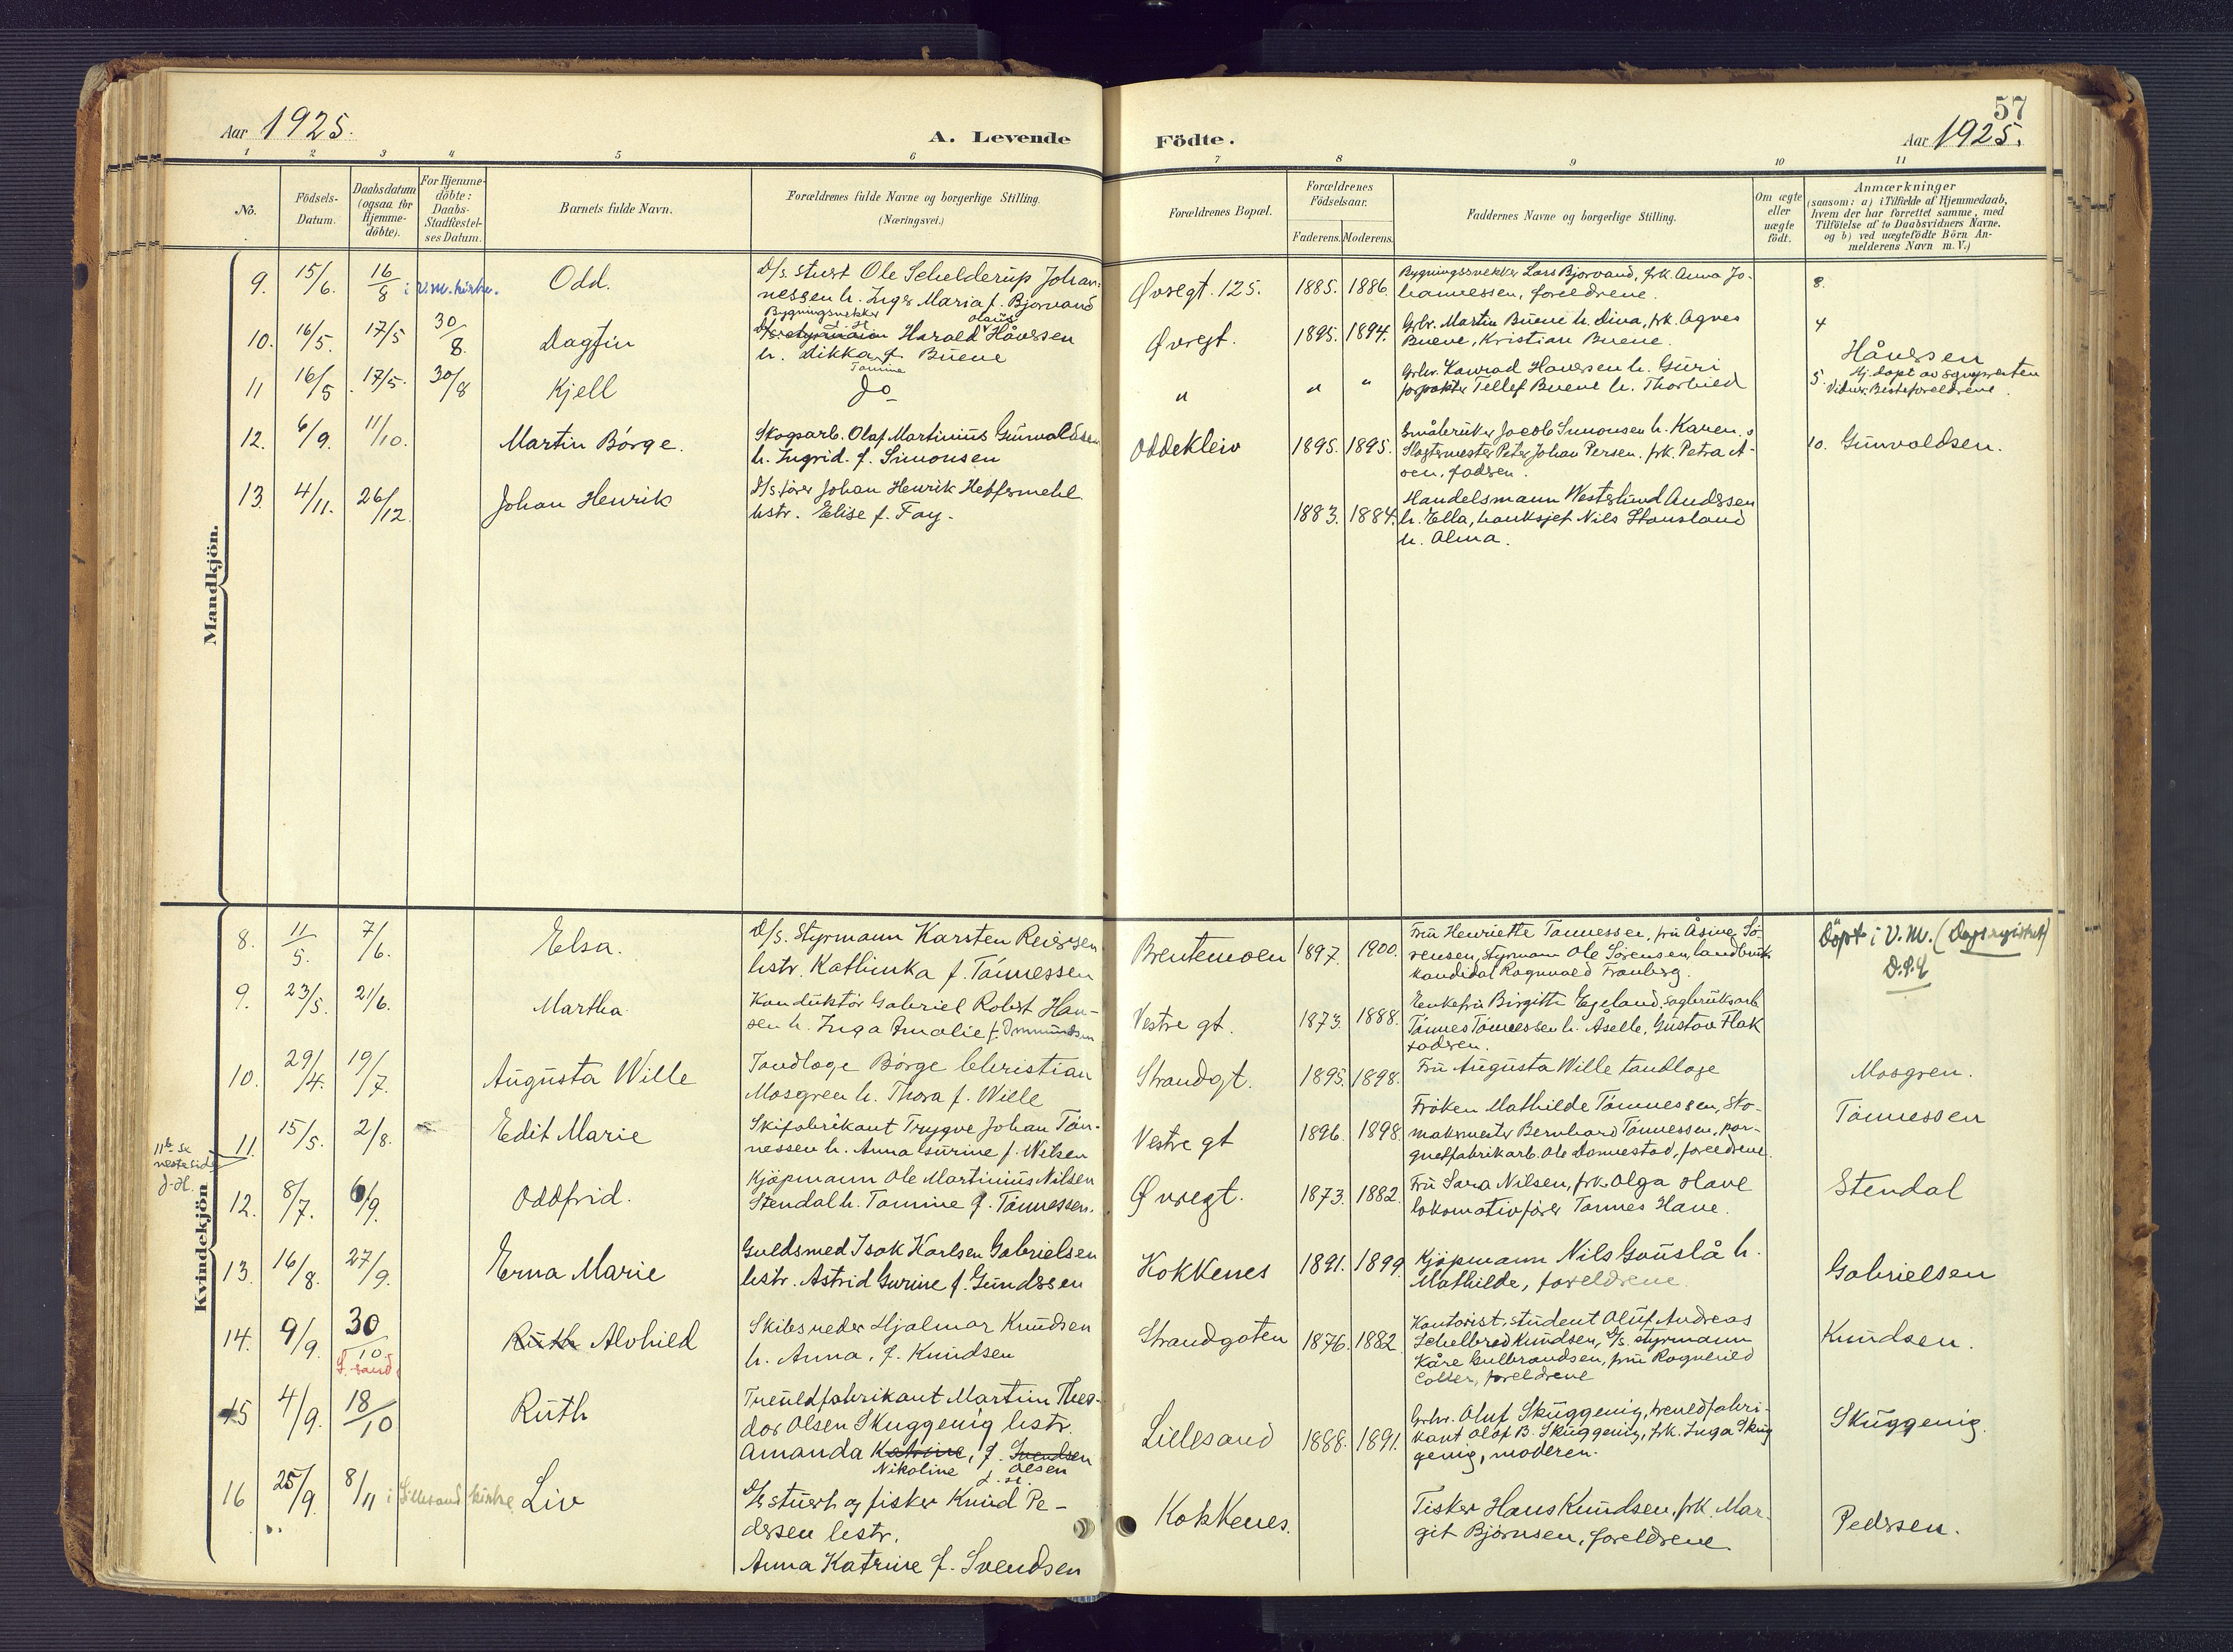 57
Aar 1925.
A. Levende Födte.
Aar 1925.
1 2 3 4 5 6 7 8 9 10 11
No.
Födsels-Datum.
Daabsdatum (ogsaa for Hjemme-döbte).
For Hjemme-döbte: Daabs-Stadfæstel-ses Datum.
Barnets fulde Navn.
Forældrenes fulde Navne og borgerlige Stilling.
(Næringsvei.)
Forældrenes Bopæl.
Forældrenes Födselsaar.
Faderens. Moderens.
Faddernes Navne og borgerlige Stilling.
Om ægte eller uægte födt.
Anmærkninger
(saasom: a) i Tilfælde af Hjemmedaab,
hvem der har forrettet samme, med
Tilföielse af to Daabsvidners Navne.
og b) ved uægtefödte Börn An-
melderens Navn m. V.)
Mandkjön.
9. 15/6. 16/8 i V.M. kirke. Odd.
D/s. stuert Ole Schelderup Johan-
nessen h. Inger Maria f. Bjorvand
Øvregt. 125. 1885. 1886.
Bygningssnekker Lars Bjorvand, frk. Anna Jo-
hannessen, foreldrene.
8.
10. 16/5. 17/5 30/8. Dagfin
Bygningsnekker Olaus
D/s. styrmann Harald Håversen
h. Dikka f. Buene
Tomine
Øvregt. 1895. 1894.
Grbr. Martin Buene h. Dina, frk. Agnes
Buene, Kristian Buene.
4
Håversen
11 16/5 17/5. 30/8 Kjell
Do
" " "
Grbr. Konrad Haversen h. Guri
forpakter Tellef Buene h. Thorhild
5. Hj. døpt av sognepresten
Vidner: Besteforeldrene.
12. 6/9. 11/10. Martin Börge.
Skogsarb. Olaf Martinius Gunvaldsen
h. Ingrid. f. Simonsen
Oddekleiv 1895. 1895.
Småbruker Jacob Simonsen h. Karen,
Slagtermester Peter Johan Persen. frk. Petra A-
sen, fadren.
10. Gunvaldsen.
13. 4/11. 26/12. Johan Henrik
D/s fører Johan Henrik Heffermehl
hstr. Elise f. Fay.
1883. 1884.
Handelsmann Westerlund Anderssen
h. Ella, banksjef Nils Stousland
h. Alma.
Kvindekjön
8. 11/5. 7/6. Elsa.
D/s. Styrmann Karsten Reiersen
hstr. Kathinka f. Tönnessen
Brentemoen 1897. 1900.
Fru Henriette Tönnessen, fru Åsine Sö-
rensen, Styrmann Ole Sörensen, landbruk
kandidat Ragnvald Tranberg.
Döpt i V.M. (Dagsregistret)
9. 23/5. 21/6. Martha
Konduktör Gabriel Robert Han-
sen h. Inga Amalie f. Ommundsen
Vestre gt. 1873. 1888.
Enkefru Birgitte Egeland. sagbruksarb.
Tönnes Tönnessen h. Åselle, Gustav Flak
fadren.
10. 29/4. 19/7. Augusta Wille
Tandlæge Börge Christian
Mosgren h. Thora f. Wille
Strandgt. 1895. 1898.
Fru Augusta Wille tandlæge
Mosgren.
11b se
neste side
J.H.
11. 15/5. 2/8. Edit Marie
Skifabrikant Trygve Johan Tön-
nessen h. Anna Gurine f. Nilsen
Vestre gt 1896. 1898.
Fröken Mathilde Tönnessen, sto-
maksmester Bernhard Tönnessen, par-
quetfabrikarb. Ole Dannestad, foreldrene.
Tönnessen
12. 8/7. 6/9. Oddfrid.
Kjöpmann Ole Martinius Nilsen
Stendal h. Tomine f. Tönnessen.
Øvregt. 1873. 1882.
Fru Sara Nilsen, frk. Olga Have
lokomotivfører Tönnes Have.
Stendal
13. 16/8. 27/9. Erna Marie
Guldsmed Isak Karlsen Gabrielsen
hstr. Astrid Gurine f. Gundersen
Kokkenes 1891. 1899.
Kjöpmann Nils Gauslå h.
Mathilde, foreldrene
Gabrielsen
14. 9/9. 30/10 L. sand. Ruth Alvhild
Skibsreder Hjalmar Knudsen
h. Anna, f. Knudsen
Strandgaten 1876. 1882.
Kontorist. student Oluf Andreas
Schelbred Knudsen, D/s. styrmann
Kåre Gulbrandsen, fru Ragnhild
Cotter, foreldrene
Knudsen.
15 4/9. 18/10 Ruth
Treuldfabrikant Martin Theo-
dor Olsen Skuggevig hstr.
Amanda Katrine, f. Svendsen
Nikoline Olsen
J. H.
Lillesand 1888. 1891.
Grbr. Oluf Skuggevig, treuldfabri-
kant Olaf B. Skuggevig, frk. Inga Skug
gevig, moderen.
Skuggevig.
16 25/9. 8/11 i Lillesand kirke Liv
D/s stuert og fisker Knud Pe-
dersen hstr.
Anna Katrine f. Svendsen
Kokkenes.
Fisker Hans Knudsen, frk. Mar-
git Björnsen, foreldrene
Pedersen.